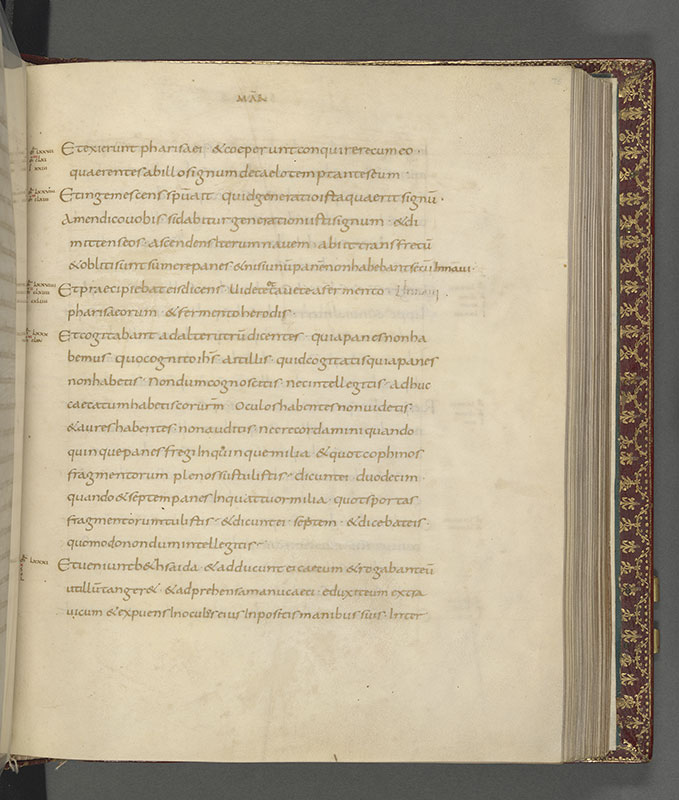 MAR
Et exierunt pharisaei · & coeperunt conquirere cum eo ·
quaerentes ab illo signum de caelo temptantes eum
Et ingemescens spu ait · quid generatio ista quaerit signū ·
Amen dico uobis · si dabitur generationi isti signum · & di
mittens eos · ascendens iterum nauem · abiit trans fretū
& obliti sunt sumere panes & nisi unū panē non habebant secū In naui ·
Et praecipiebat eis dicens · Uidete & cauete a fermento
pharisaeorum · & fermento herodis ·
Et cogitabant ad alterutrū dicentes · quia panes non ha
bemus · quo cognito ihs̄ ait illis · quid cogitatis quia panes
non habetis · Nondum cognoscitis nec intellegitis · adhuc
caecatum habetis cor urm̄ · Oculos habentes non uidetis ·
& aures habentes · non auditis · nec recordamini quando
quinque panes fregi In quinque milia · & quot cophinos
fragmentorum plenos sustulistis · dicunt ei duodecim ·
quando & septem panes In quattuor milia · quot sportas
fragmentorum tulistis · & dicunt ei · septem · & dicebat eis ·
quomodo nondum intellegitis ·
Et ueniunt b&hsaida · & adducunt ei caecum & rogabant eū
ut illū tanger& · & adprehensa manu caeci · eduxit eum extra
uicum & expuens In oculos eius Inpositis manibus suis · Inter